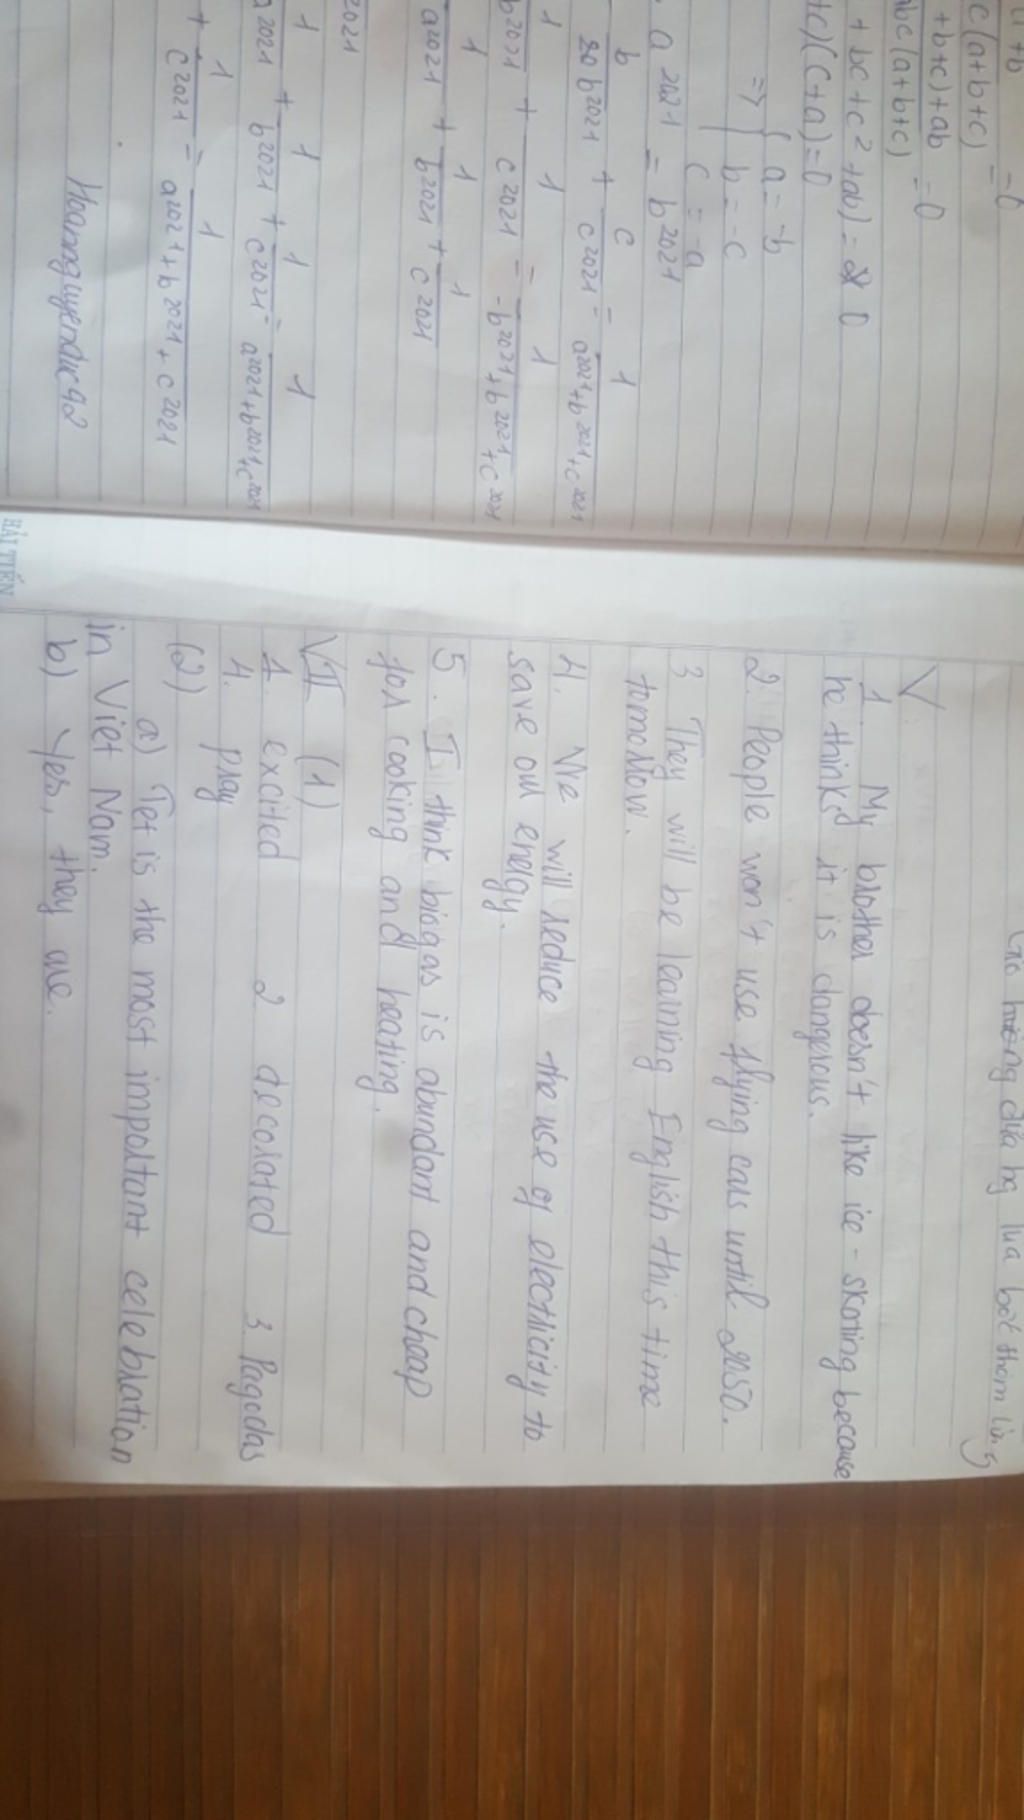 a+b
c(a+b+c) = 0
+b+c)+ab
bc(a+b+c) = 0
+bc+c²+ab) = 0
+c)(c+a)=0
=> { a=-b
b=-c
c=-a
a²⁰²¹ = b²⁰²¹
b c 1
b²⁰²¹ + c²⁰²¹ = a²⁰²¹+b²⁰²¹+c²⁰²¹
1 1 1
b²⁰²¹ + c²⁰²¹ = -b²⁰²¹+b²⁰²¹+c²⁰²¹
1 1 1
a²⁰²¹ + b²⁰²¹ + c²⁰²¹
2021
1 1 1 1
a²⁰²¹ + b²⁰²¹ + c²⁰²¹ = a²⁰²¹+b²⁰²¹+c²⁰²¹
1 1
+ c²⁰²¹ = a²⁰²¹+b²⁰²¹+c²⁰²¹
Hoanguyenduc92
HẢI TIẾN
V.
1. My brother doesn't like ice-skating because
he thinks it is dangerous.
2. People won't use flying cars until 2050.
3 They will be learning English this time
tomorrow.
4. We will reduce the use of electricity to
save our energy.
5. I think biogas is abundant and cheap
for cooking and heating.
VII (1)
1. excited 2 decorated 3. Pagodas
4. play
(2)
a) Tet is the most important celebration
in Viet Nam.
b) Yes, they are.